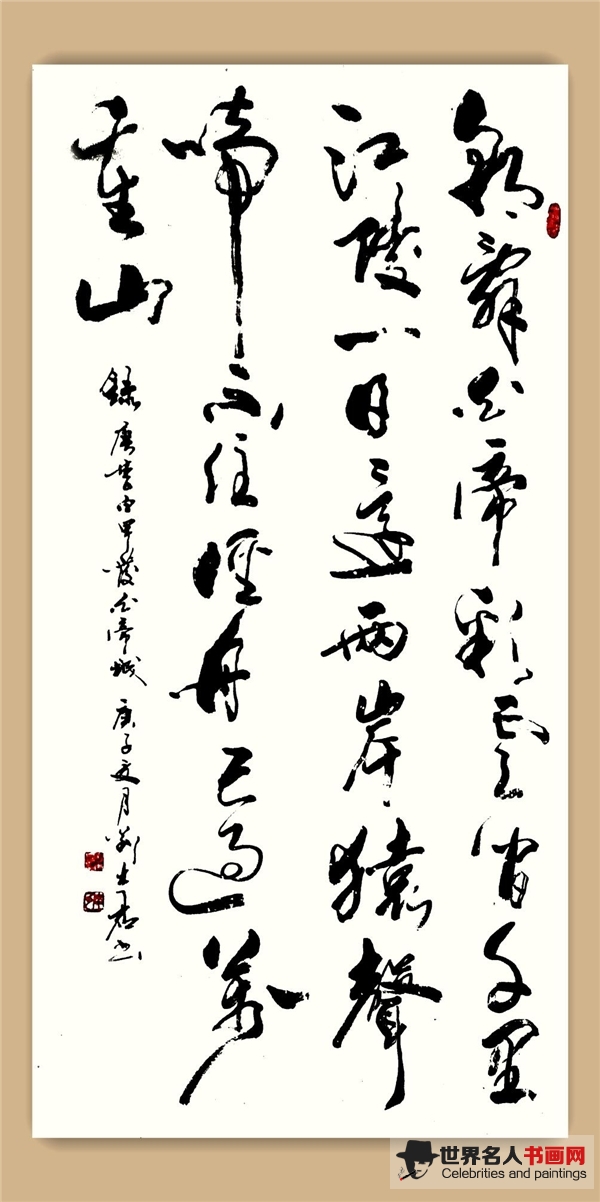 朝辞白帝彩云间千里
江陵一日还两岸猿聲
啼不住轻舟已过万
重山
録唐李白早發白帝城 庚子文月
世界名人书画网
Celebrities and paintings